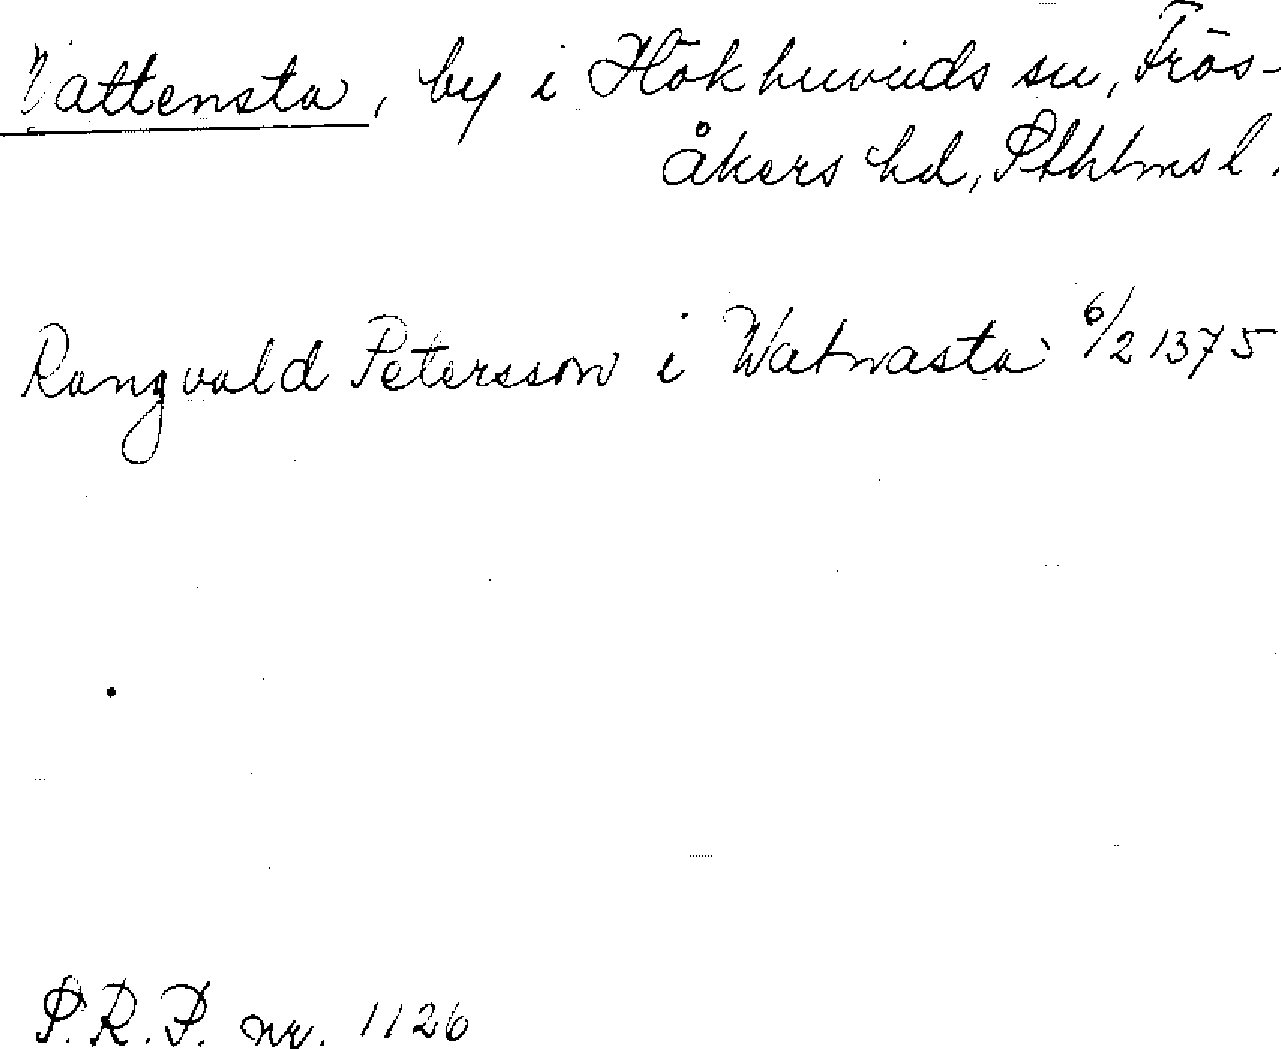 Vattensta, by i Hökhuvuds sn, Frös-
åkers hd, Sthlms l.
Rangvald Petersson i Watnasta 6/2 1375
S.R.P. nr. 1126